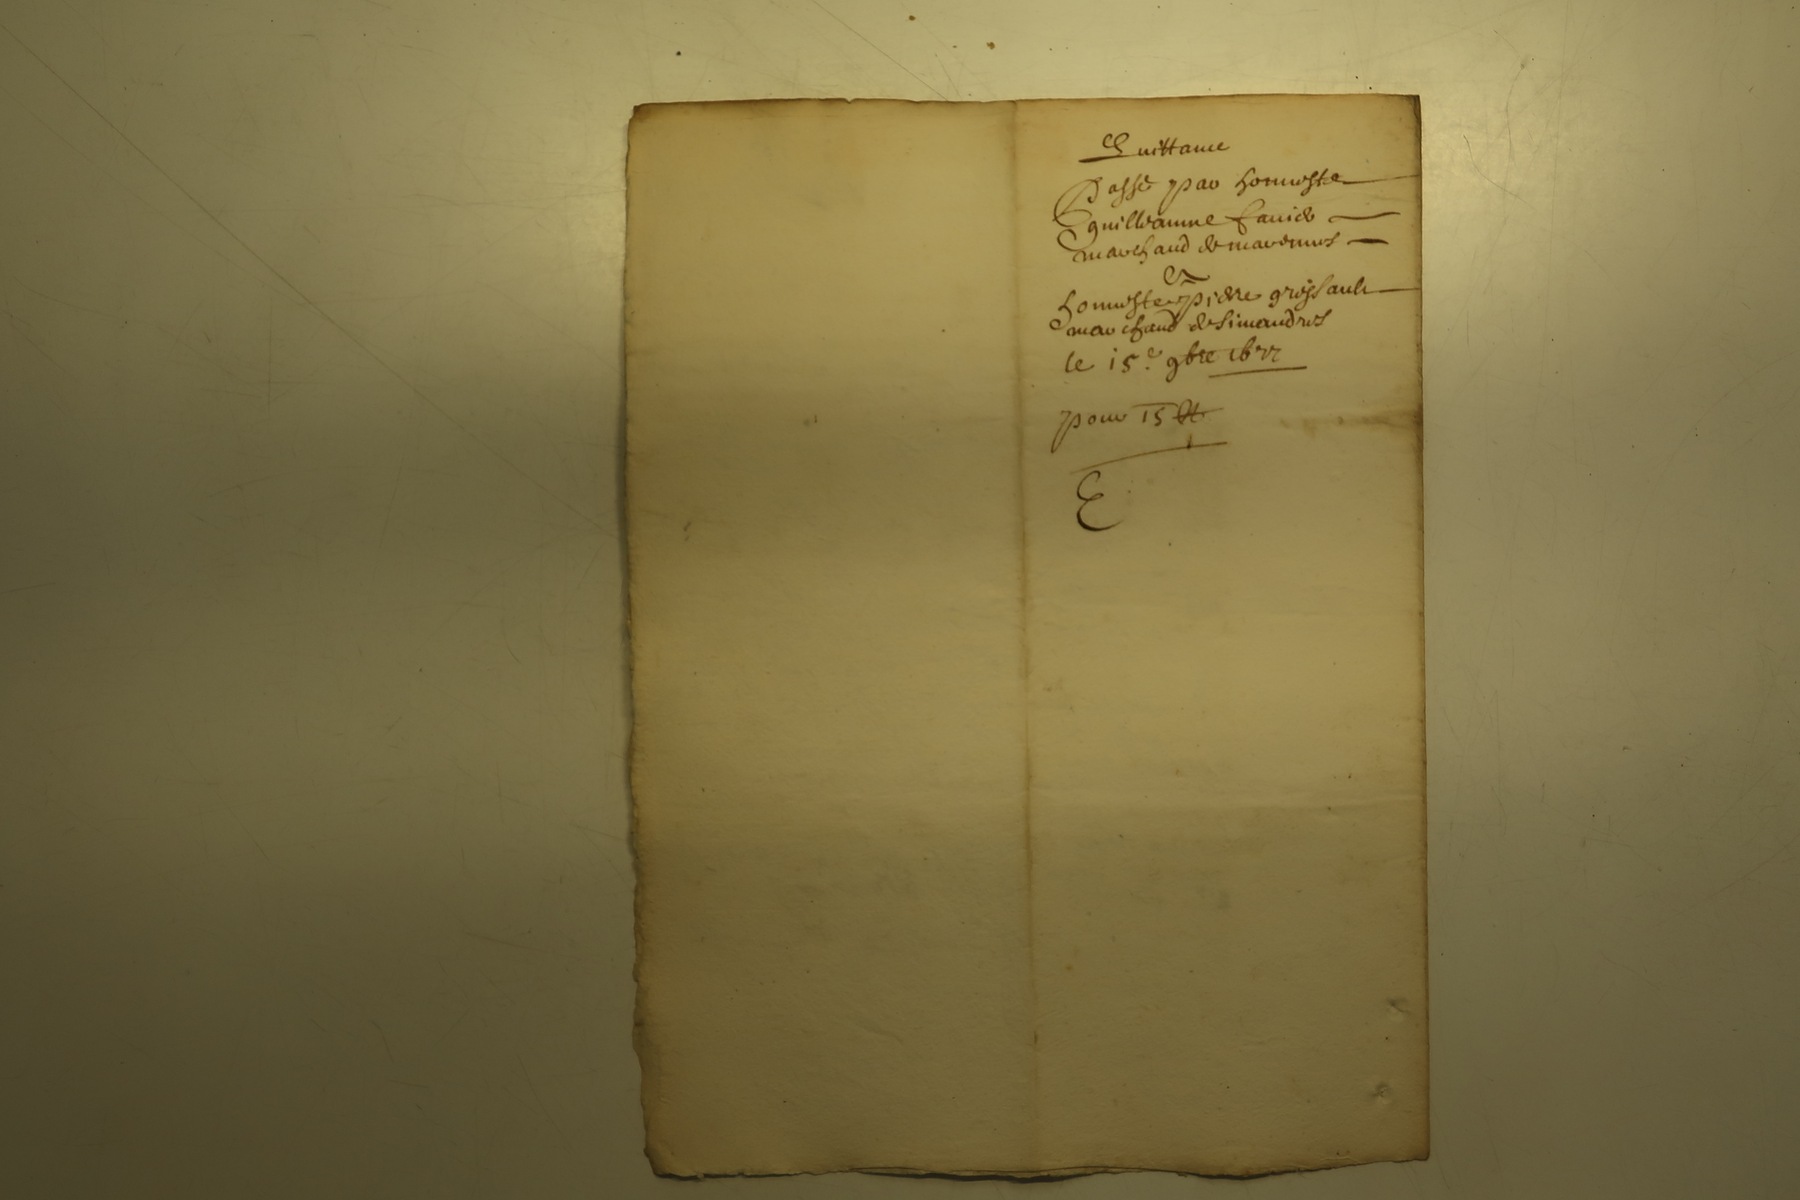 Quittance
Passé par honneste
guilleaume Favier
marchand de marennes
Et
honneste pierre grissault
marchand de Simandres
le 15.e 9bre 1677
pour 15 ₶
E